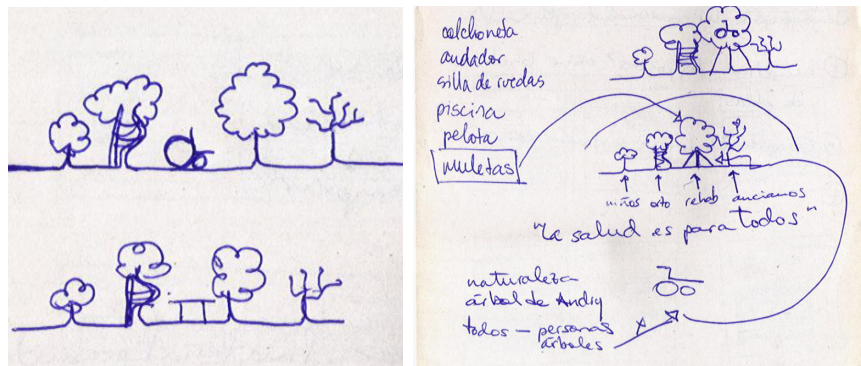 colchoneta
andador
silla de ruedas
piscina
pelota
muletas
niños orto rehab ancianos
"La salud es para todos"
naturaleza
árbol de Andry
todos — personas
árboles